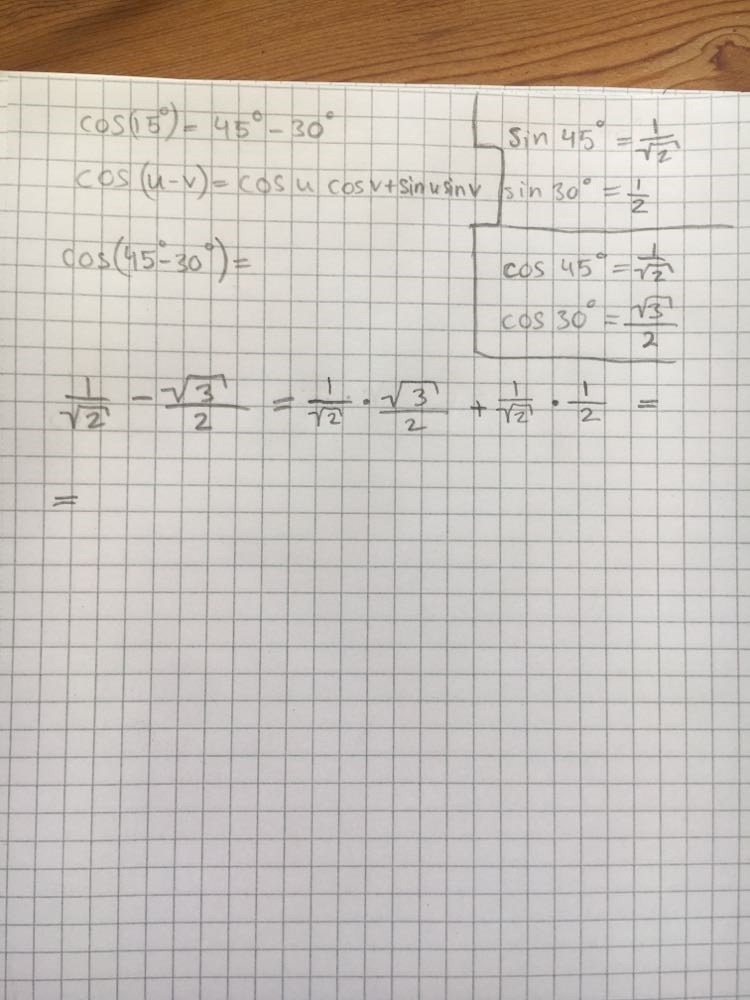 cos(15°) = 45° - 30°
cos(u-v) = cos u cos v + sin u sin v
cos(45° - 30°) =
sin 45° = 1/√2
sin 30° = 1/2
cos 45° = 1/√2
cos 30° = √3/2
1/√2 - √3/2 = 1/√2 · √3/2 + 1/√2 · 1/2 =
=